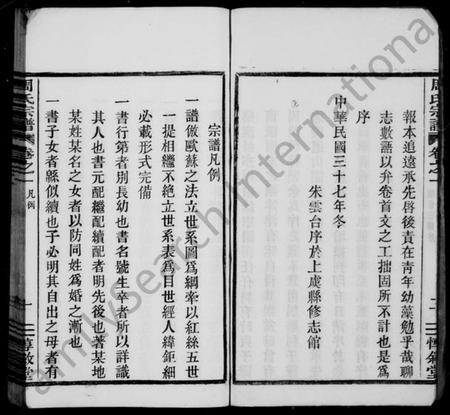 周氏宗譜
卷之一
報本追遠承先啓後責在青年幼蒙勉乎哉聊
志數語以弁卷首文之工拙固所不計也是爲
序
中華民國三十七年冬
朱雲台序於上虞縣修志館
宗譜凡例
一譜倣歐蘇之法立世系圖爲綱牽以紅絲五世
一提相繼不絶立世系表爲目世經人緯鉅細
必載形式完備
一書行第者別長幼也書名號生卒者所以詳識
其人也書元配繼配續配者明先後也著某地
某姓某名之女者以防同姓爲婚之漸也
一書子女者縣似續也子必明其自出之母者有
周氏宗譜
卷之一
凡例
一
敦堂
FamilySearch International